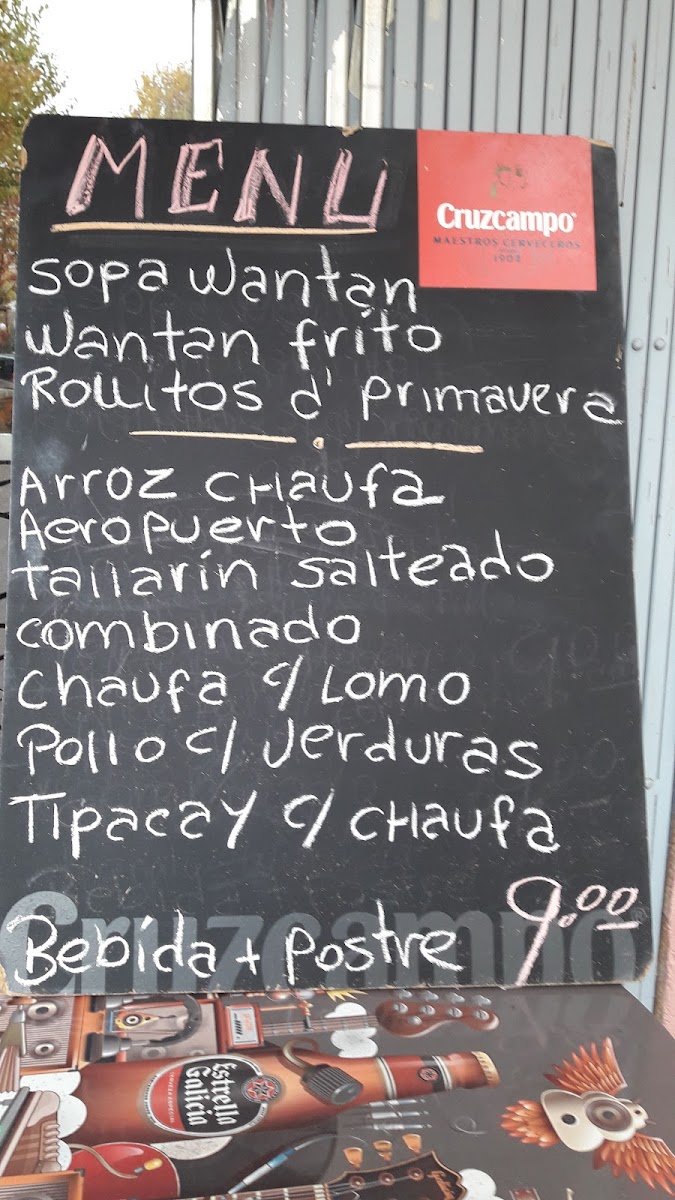 MENU
Cruzcampo
MAESTROS CERVECEROS
1904
sopa wantan
wantan frito
Rollitos d' primavera
Arroz CHaufa
Aeropuerto
Tallarín salteado
combinado
chaufa c/ Lomo
Pollo c/ Verduras
Tipacay c/ CHaufa
9.00
Cruzcampo
Bebida + Postre
Estrella
Galicia